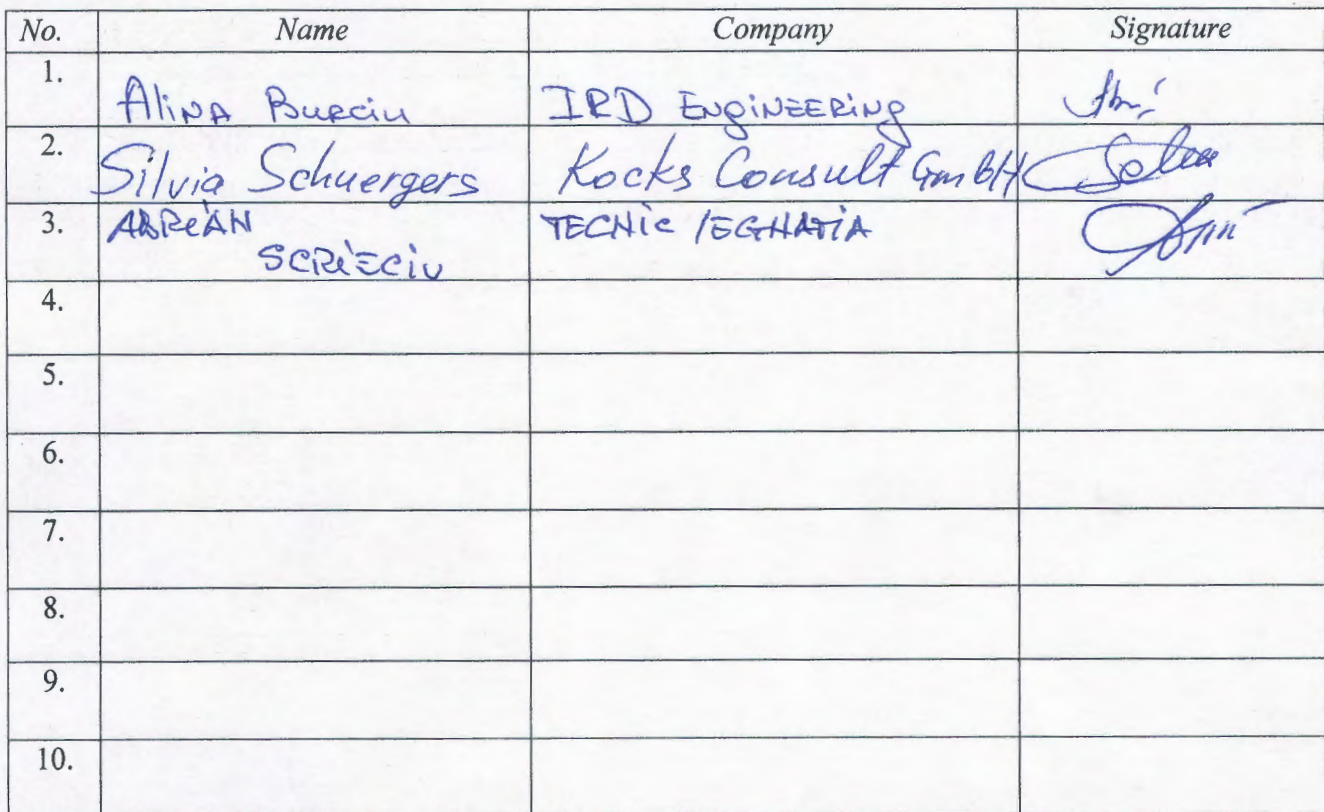 No. Name Company Signature
1. Alina Burciu IRD Engineering
2. Silvia Schuergers Kocks Consult GmbH
3. ADRIAN TECNIC /EGNATIA
SCRIECIU
4.
5.
6.
7.
8.
9.
10.